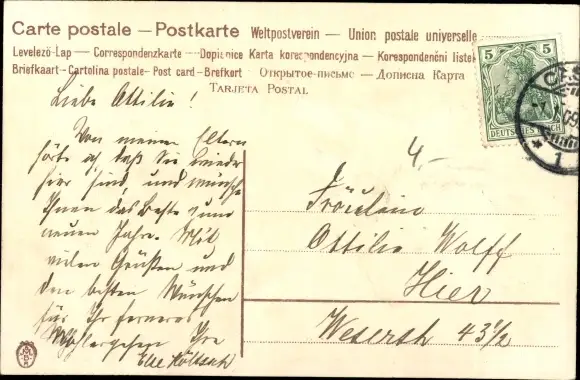 Carte postale — Postkarte Weltpostverein — Union postale universelle
Levelező-Lap — Correspondenzkarte — Dopisnice Karta korespondencyjna — Korespondenční listek
Briefkaart — Cartolina postale — Post card — Brefkort Открытое письмо — Дописна Карта
TARJETA POSTAL
5 5
DEUTSCHES REICH
Liebe Attilie!
Von meinen Eltern
hörte ich, daß Sie wieder
hier sind, und wünsche
Ihnen das Beste zum
neuen Jahre. Mit
vielen Grüßen und
den besten Wünschen
für Ihr ferneres
Wohlergehen Ihre
Else
4,-
Fräulein
Attilie Wolff
Hier
Weserstr 43 1/2